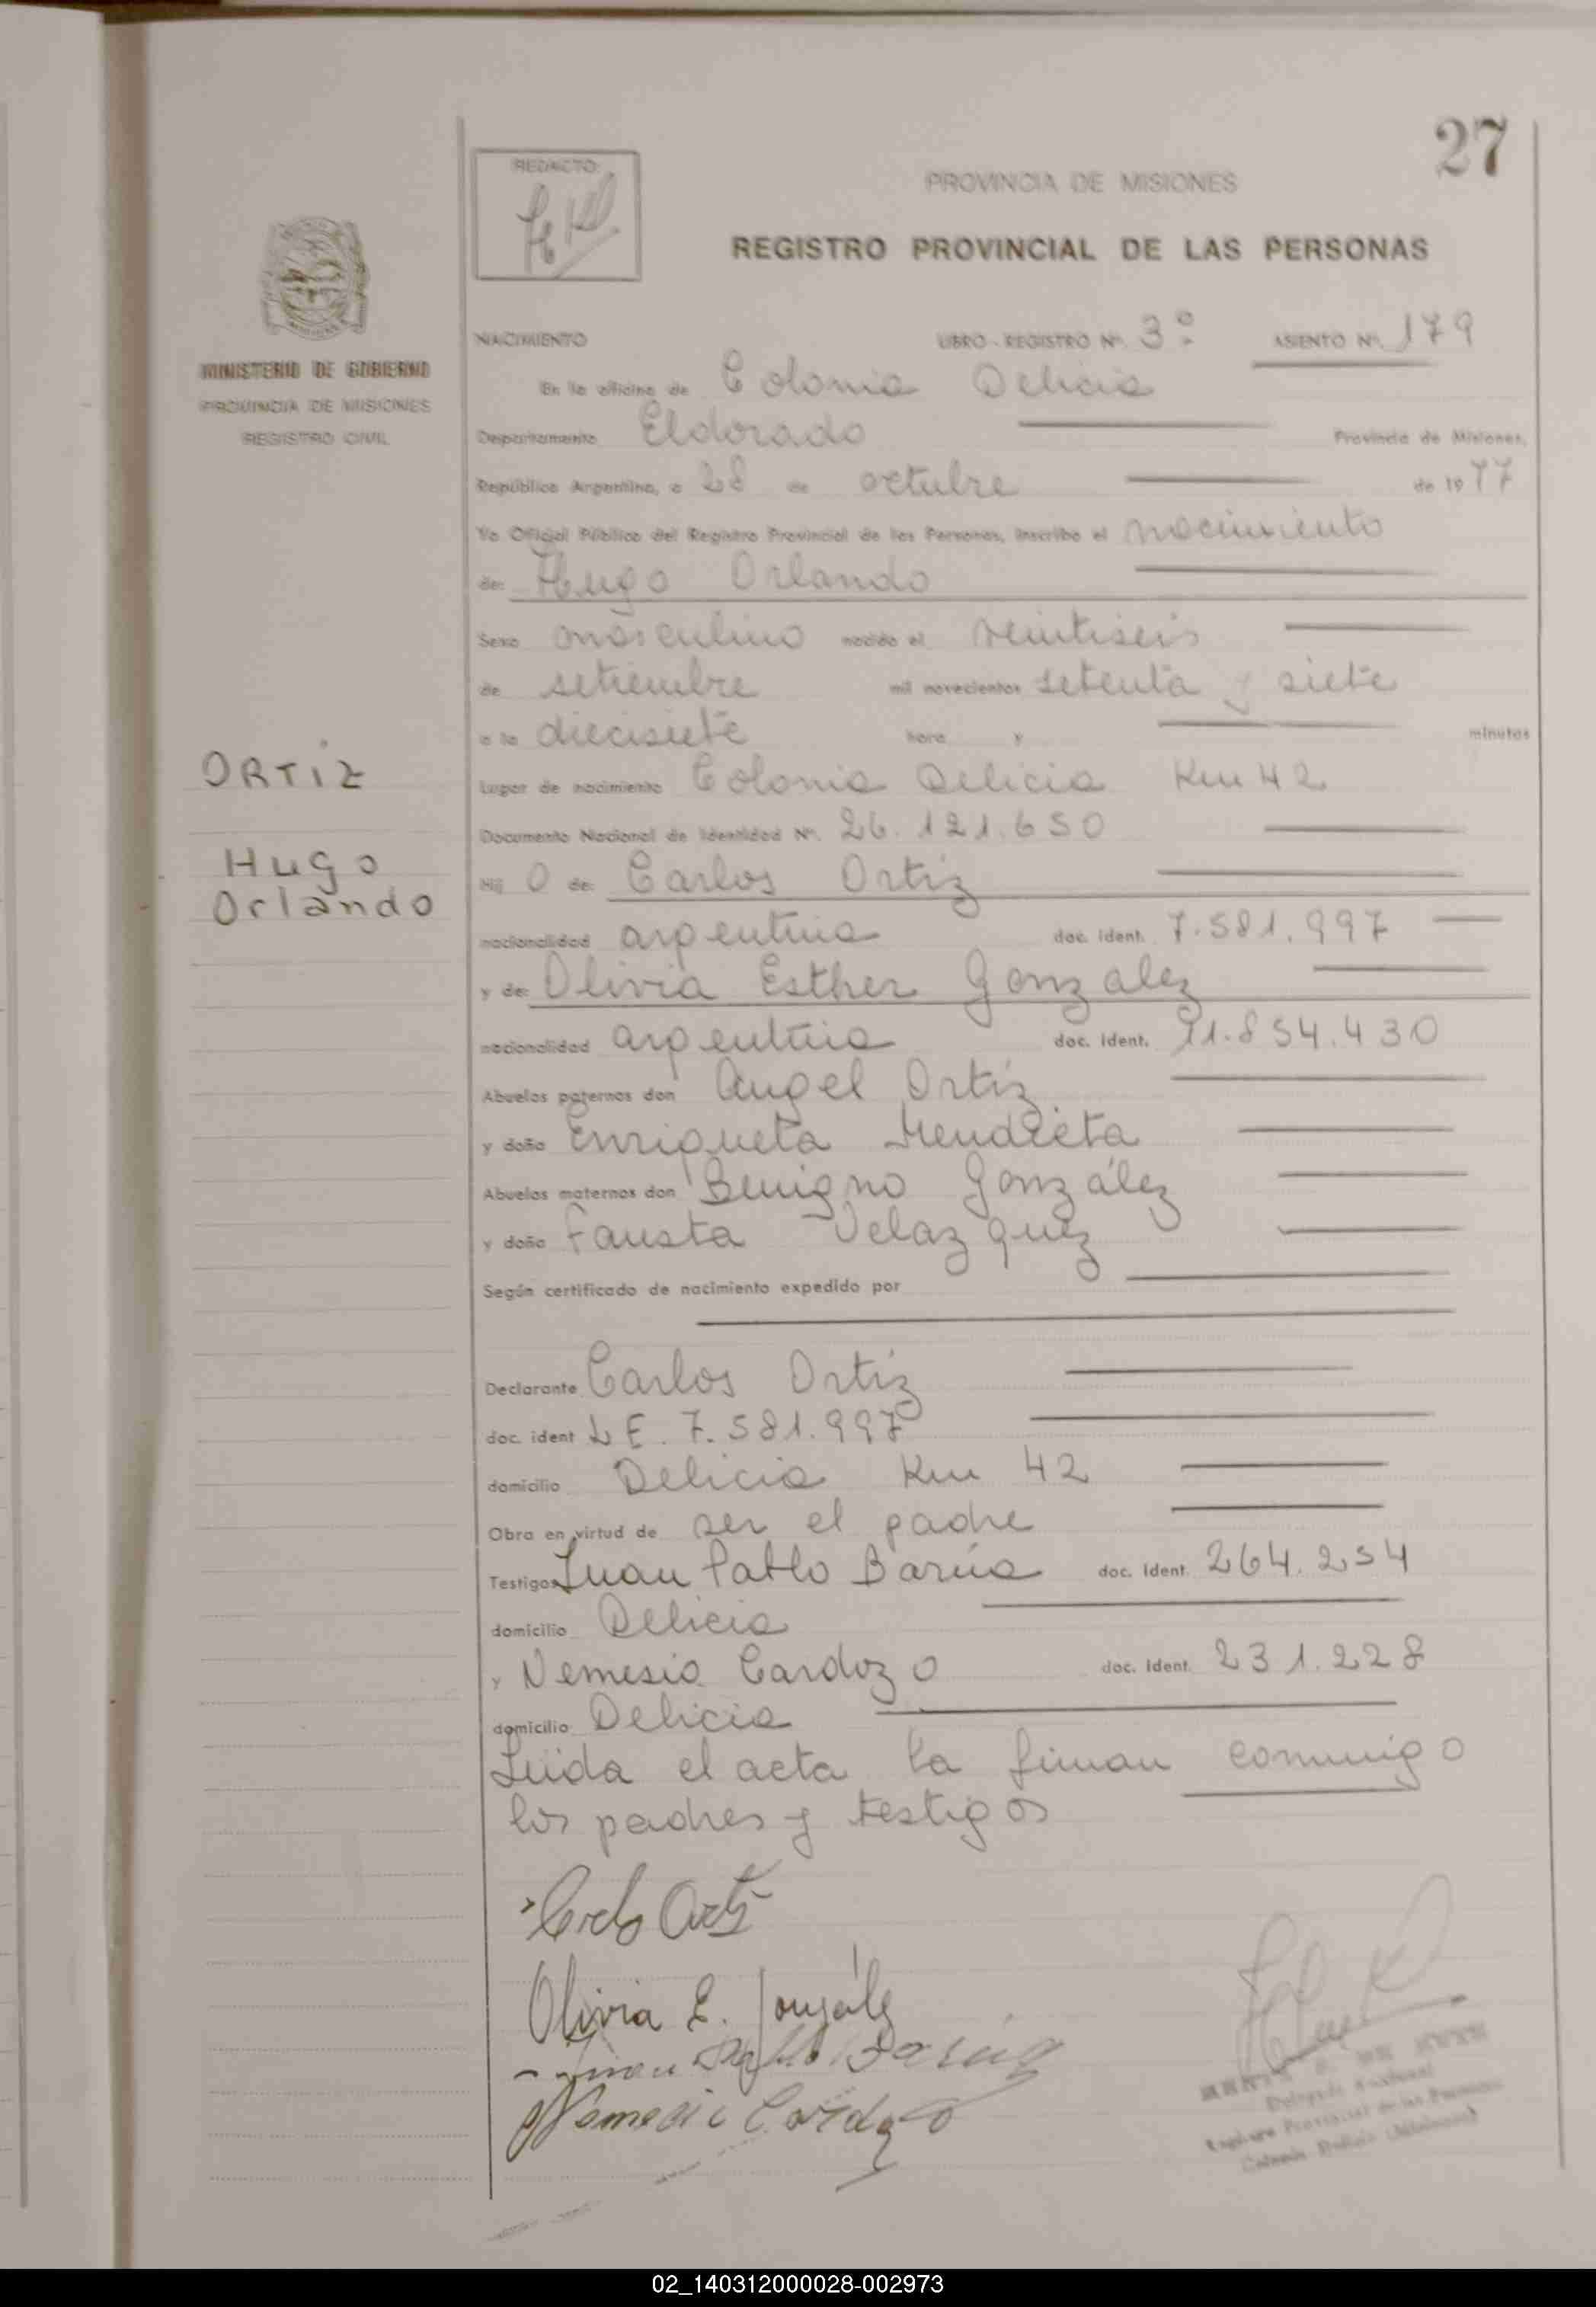 27
REDACTO:
PROVINCIA DE MISIONES
REGISTRO PROVINCIAL DE LAS PERSONAS
MINISTERIO DE GOBIERNO
PROVINCIA DE MISIONES
REGISTRO CIVIL
NACIMIENTO LIBRO - REGISTRO Nº. 3º ASIENTO Nº. 179
En la oficina de Colonia Delicia
Departamento Eldorado Provincia de Misiones,
República Argentina, a 28 de octubre de 1977
Yo Oficial Público del Registro Provincial de las Personas, inscribo el nacimiento
de: Hugo Orlando
Sexo masculino nacido el veintiseis
de setiembre mil novecientos setenta y siete
a la diecisiete hora y minutos
ORTIZ
Lugar de nacimiento Colonia Delicia Km 42
Documento Nacional de Identidad Nº. 26.121.650
Hugo
Orlando
Hij o de: Carlos Ortiz
nacionalidad argentina doc. ident. 7.581.997
y de: Olivia Esther Gonzalez
nacionalidad argentina doc. ident. 11.854.430
Abuelos paternos don Angel Ortiz
y doña Enriqueta Mendieta
Abuelos maternos don Benigno González
y doña Fausta Velazquez
Según certificado de nacimiento expedido por
Declarante Carlos Ortiz
doc. ident L E. 7.581.997
domicilio Delicia Km 42
Obra en virtud de ser el padre
Testigos Juan Pablo Barúa doc. ident. 264.254
domicilio Delicia
y Nemesio Cardozo doc. ident. 231.228
domicilio Delicia
Leida el acta la firman conmigo
los padres y testigos
Carlos Ortiz
Olivia E. González
Juan Pablo Barúa
Nemesio Cardozo
Registro Provincial de las Personas
Colonia Delicia (Misiones)
02_140312000028-002973